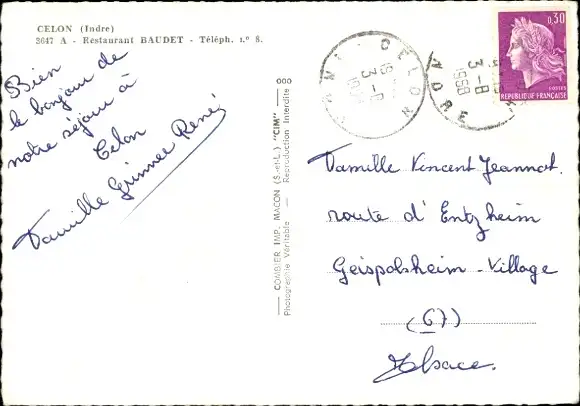 CELON (Indre)
3647 A - Restaurant BAUDET - Téléph. 1.º 8.
Bien
le bonjour de
notre séjour à
Celon
Famille René
000
COMBIER IMP. MACON (S.-et-L.) "CIM"
Photographie Véritable — Reproduction Interdite
CELON
3-8
1968
INDRE
0,30
POSTES
REPUBLIQUE FRANÇAISE
Famille Vincent Jeannot.
route d'Entzheim
Geispolsheim-Village
(67)
Alsace.